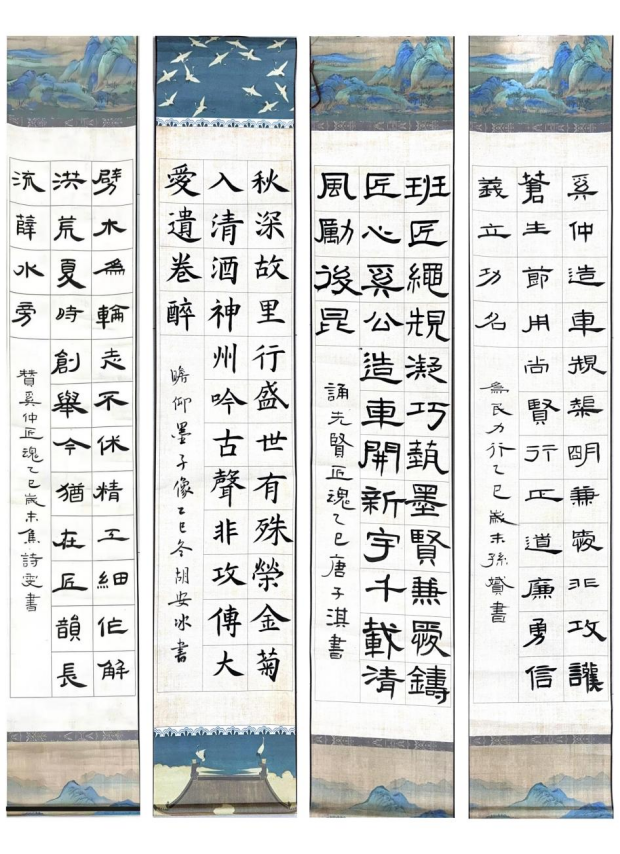 奚仲造車規榘明兼愛非攻護
蒼生節用尚賢行正道廉勇信
義立功名
為民力行乙巳歲末孫贇書
班匠繩規凝巧藝墨賢兼愛鑄
匠心奚公造車開新宇千載清
風勵後昆
誦先賢匠魂乙巳唐子淇書
秋深故里行盛世有殊榮金菊
入清酒神州吟古聲非攻傳大
愛遺卷醉
瞻仰墨子像乙巳冬胡安冰書
劈木為輪志不休精工細作解
洪荒夏時創舉今猶在匠韻長
流薛水旁
贊奚仲匠魂乙巳歲末焦詩雯書